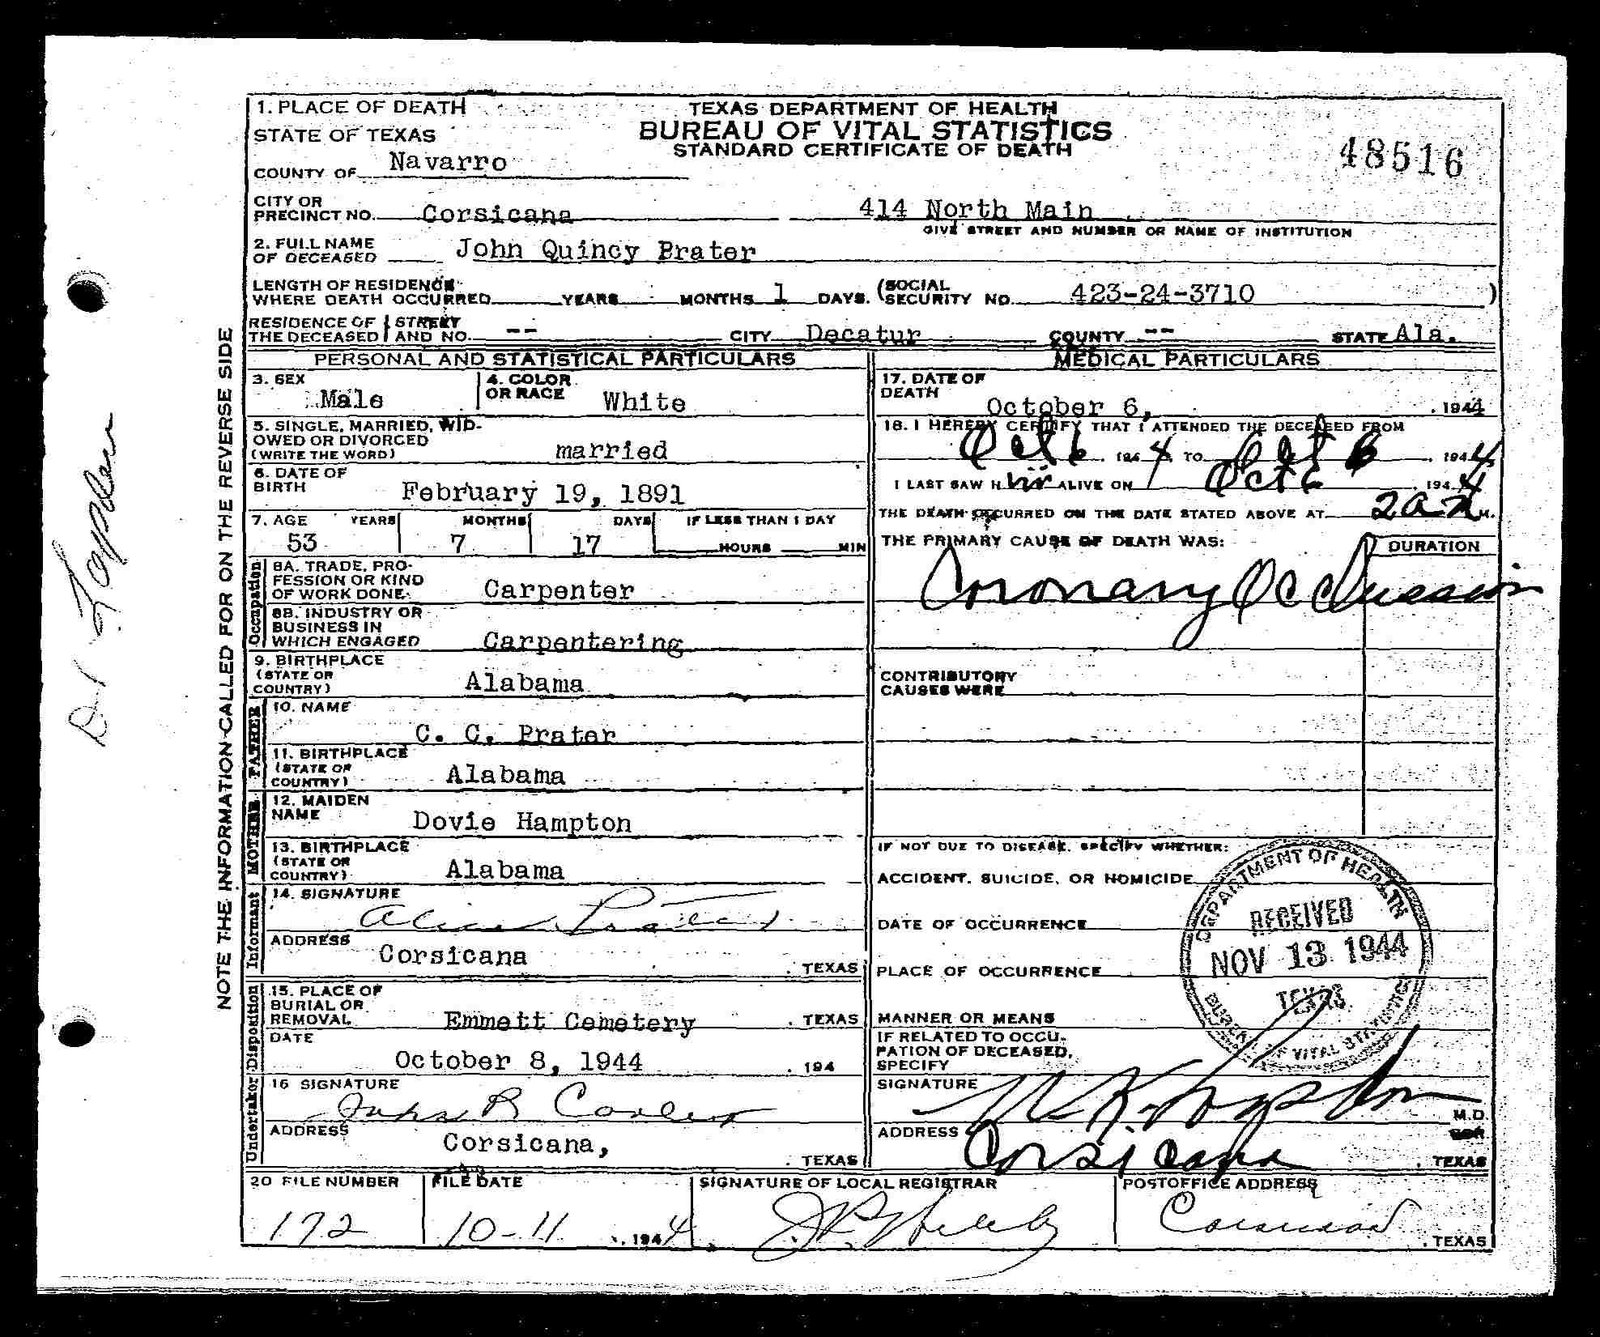 1. PLACE OF DEATH
TEXAS DEPARTMENT OF HEALTH
STATE OF TEXAS
BUREAU OF VITAL STATISTICS
STANDARD CERTIFICATE OF DEATH
48516
COUNTY OF Navarro
CITY OR PRECINCT NO. Corsicana 414 North Main
GIVE STREET AND NUMBER OR NAME OF INSTITUTION
2. FULL NAME OF DECEASED John Quincy Prater
LENGTH OF RESIDENCE WHERE DEATH OCCURRED YEARS MONTHS 1 DAYS. (SOCIAL SECURITY NO. 423-24-3710 )
RESIDENCE OF THE DECEASED STREET AND NO. -- CITY Decatur COUNTY -- STATE Ala.
PERSONAL AND STATISTICAL PARTICULARS
3. SEX Male
4. COLOR OR RACE White
5. SINGLE, MARRIED, WIDOWED OR DIVORCED (WRITE THE WORD) married
6. DATE OF BIRTH February 19, 1891
7. AGE YEARS MONTHS DAYS IF LESS THAN 1 DAY
53 7 17 HOURS MIN
Occupation
8A. TRADE, PROFESSION OR KIND OF WORK DONE Carpenter
8B. INDUSTRY OR BUSINESS IN WHICH ENGAGED Carpentering
9. BIRTHPLACE (STATE OR COUNTRY) Alabama
FATHER
10. NAME C. C. Prater
11. BIRTHPLACE (STATE OR COUNTRY) Alabama
MOTHER
12. MAIDEN NAME Dovie Hampton
13. BIRTHPLACE (STATE OR COUNTRY) Alabama
Informant
14. SIGNATURE Alice Prater
ADDRESS Corsicana . TEXAS
Disposition
15. PLACE OF BURIAL OR REMOVAL Emmett Cemetery . TEXAS
DATE October 8, 1944 . 194
Undertaker
16 SIGNATURE
ADDRESS Corsicana, . TEXAS
MEDICAL PARTICULARS
17. DATE OF DEATH October 6, . 1944
18. I HEREBY CERTIFY THAT I ATTENDED THE DECEASED FROM
Oct 6 . 194 4 TO Oct 6 . 194 4
I LAST SAW H im ALIVE ON Oct 6 . 194 4
THE DEATH OCCURRED ON THE DATE STATED ABOVE AT 2 a M.
THE PRIMARY CAUSE OF DEATH WAS: DURATION
Coronary Occlussion
CONTRIBUTORY CAUSES WERE
IF NOT DUE TO DISEASE, SPECIFY WHETHER:
ACCIDENT, SUICIDE, OR HOMICIDE
DATE OF OCCURRENCE
PLACE OF OCCURRENCE
MANNER OR MEANS
IF RELATED TO OCCUPATION OF DECEASED, SPECIFY
SIGNATURE M.D.
ADDRESS Corsicana . TEXAS
DEPARTMENT OF HEALTH
RECEIVED
NOV 13 1944
TEXAS
BUREAU OF VITAL STATISTICS
20 FILE NUMBER FILE DATE SIGNATURE OF LOCAL REGISTRAR POSTOFFICE ADDRESS
172 10-11 . 1944 Corsicana . TEXAS
NOTE THE INFORMATION CALLED FOR ON THE REVERSE SIDE